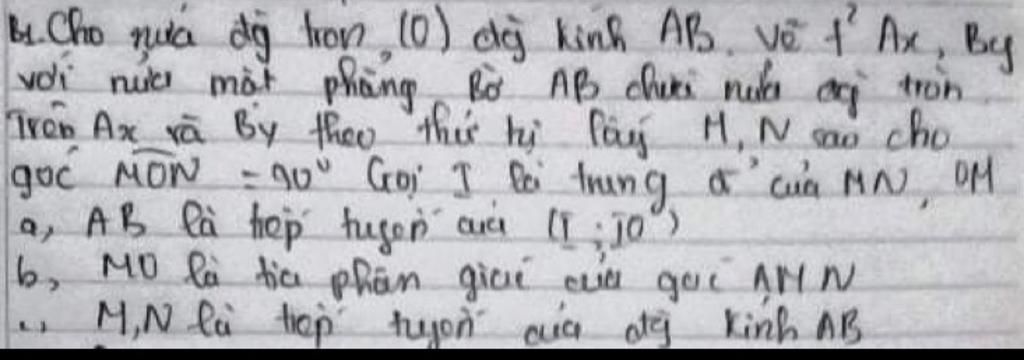 B1. Cho nửa đg tròn (O) đg kính AB. Vẽ t² Ax, By
với nửa mặt phẳng Bờ AB chứa nửa đg tròn
Trên Ax và By theo thứ tự lấy M, N sao cho
góc MON = 90° Gọi I là trung đ' của MN, CM
a, AB là tiếp tuyến của (I; IO)
b, MO là tia phân giác của góc AMN
M,N là tiếp tuyến của đg kính AB